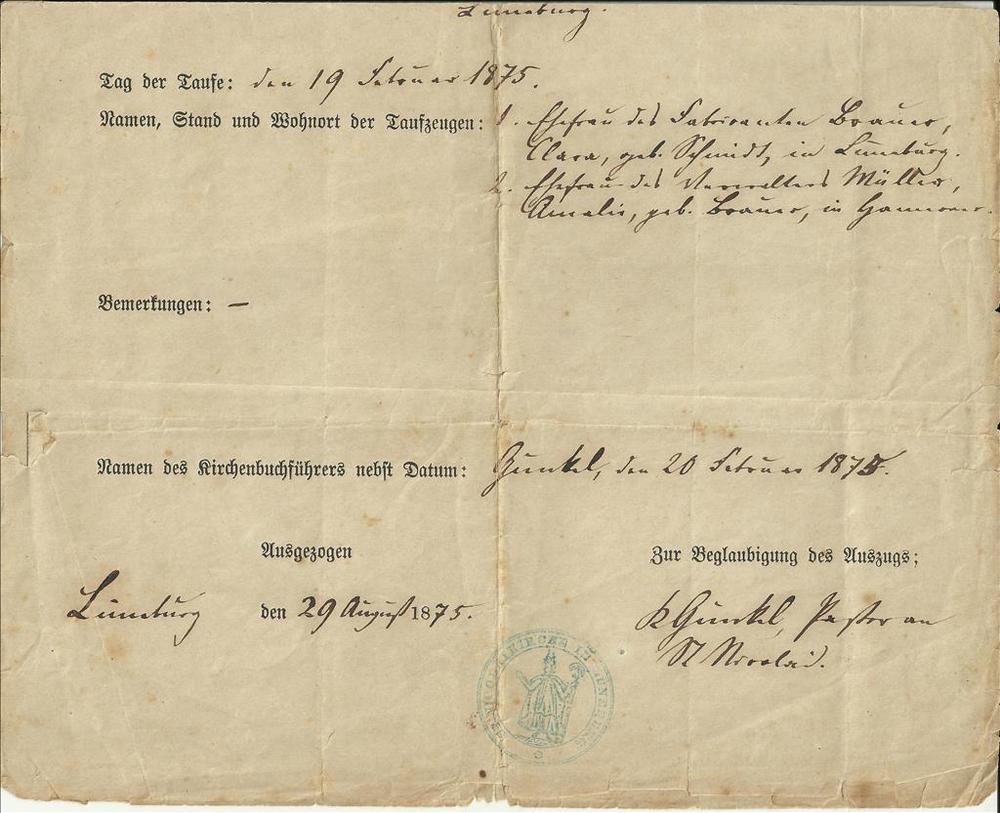 Lüneburg.
Tag der Taufe: den 19 Februar 1875.
Namen, Stand und Wohnort der Taufzeugen: 1. Ehefrau des Fabrikanten Brauer,
Clara, geb. Schmidt, in Lüneburg.
2. Ehefrau des Verwalters Müller,
Amalie, geb. Brauer, in Hannover.
Bemerkungen: —
Namen des Kirchenbuchführers nebst Datum: Gunkel, den 20 Februar 1875.
Ausgezogen
Zur Beglaubigung des Auszugs;
Lüneburg den 29 August 1875.
K Gunkel, Pastor an
St Nicolai.